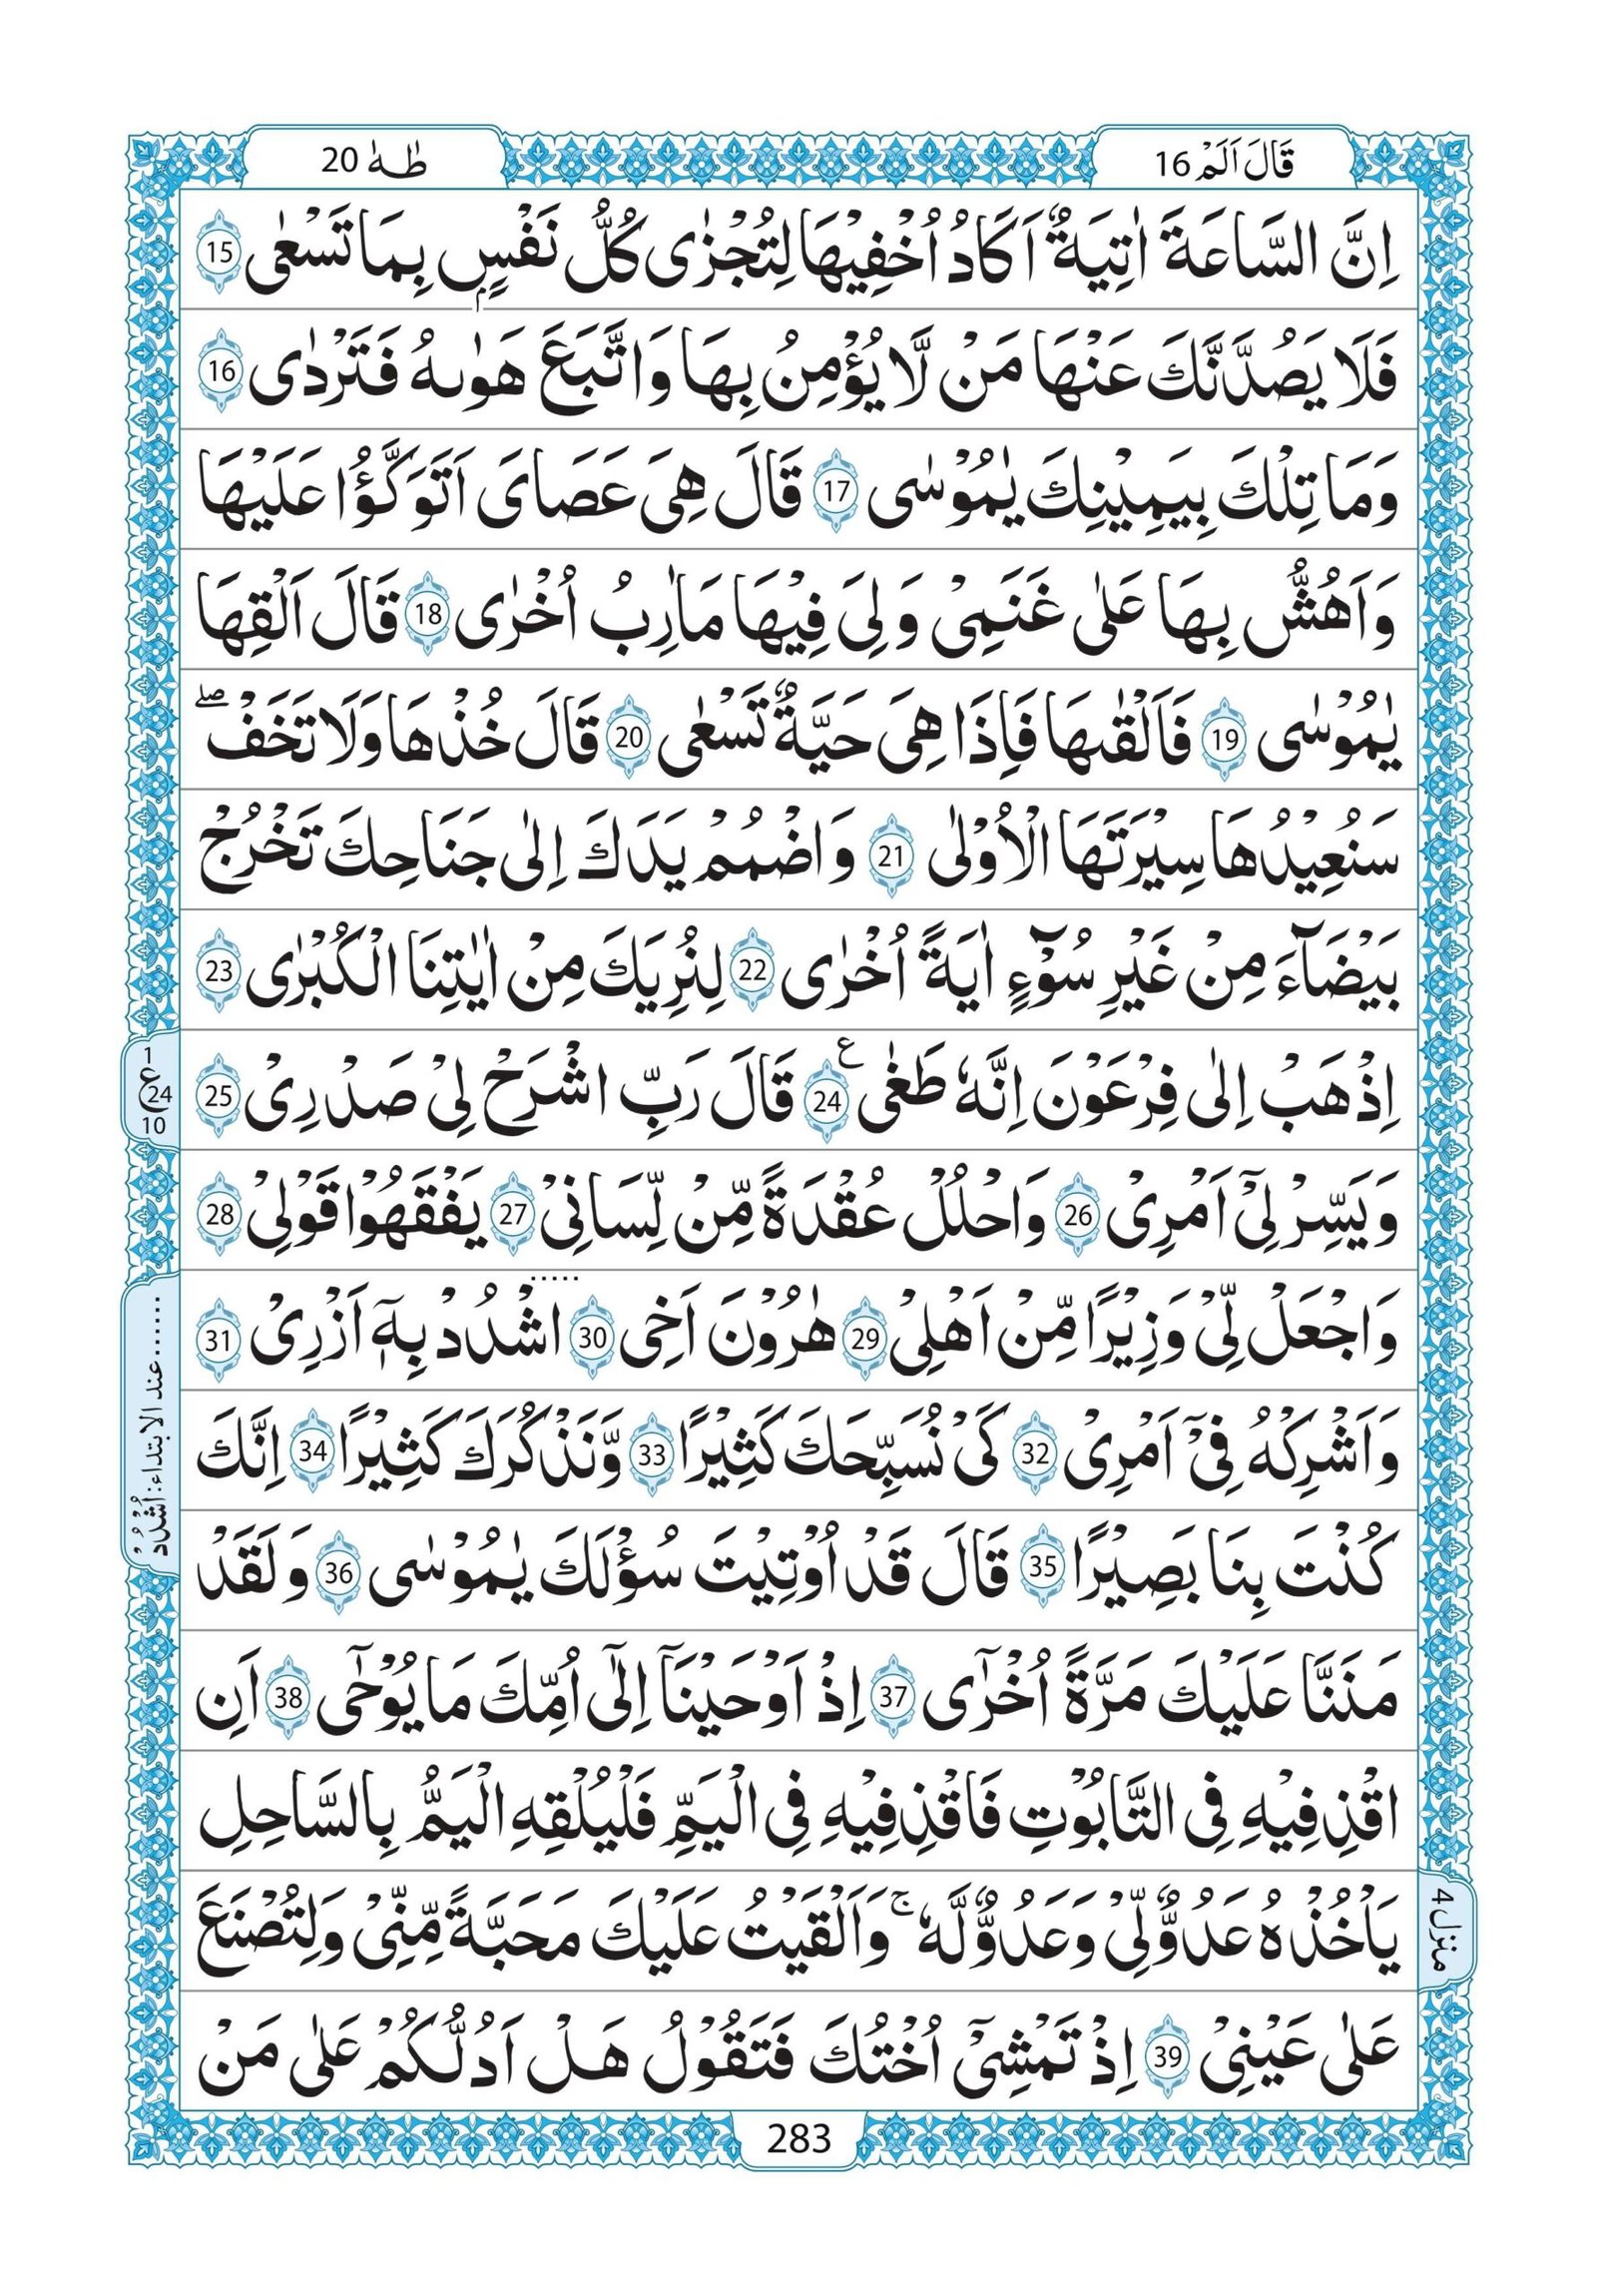 قَالَ اَلَمْ 16
طٰـهٰ 20
اِنَّ السَّاعَةَ اٰتِيَةٌ اَكَادُ اُخْفِيْهَا لِتُجْزٰى كُلُّ نَفْسٍۭ بِمَا تَسْعٰى 15
فَلَا يَصُدَّنَّكَ عَنْهَا مَنْ لَّا يُؤْمِنُ بِهَا وَاتَّبَعَ هَوٰىهُ فَتَرْدٰى 16
وَمَا تِلْكَ بِيَمِيْنِكَ يٰمُوْسٰى 17 قَالَ هِىَ عَصَاىَ اَتَوَكَّؤُا عَلَيْهَا
وَاَهُشُّ بِهَا عَلٰى غَنَمِىْ وَلِىَ فِيْهَا مَاٰرِبُ اُخْرٰى 18 قَالَ اَلْقِهَا
يٰمُوْسٰى 19 فَاَلْقٰىهَا فَاِذَا هِىَ حَيَّةٌ تَسْعٰى 20 قَالَ خُذْهَا وَلَا تَخَفْ ۖ
سَنُعِيْدُهَا سِيْرَتَهَا الْاُوْلٰى 21 وَاضْمُمْ يَدَكَ اِلٰى جَنَاحِكَ تَخْرُجْ
بَيْضَآءَ مِنْ غَيْرِ سُوْٓءٍ اٰيَةً اُخْرٰى 22 لِنُرِيَكَ مِنْ اٰيٰتِنَا الْكُبْرٰى 23
اِذْهَبْ اِلٰى فِرْعَوْنَ اِنَّهٗ طَغٰى 24 ع قَالَ رَبِّ اشْرَحْ لِىْ صَدْرِىْ 25
1 ع 24 10
وَيَسِّرْ لِىْٓ اَمْرِىْ 26 وَاحْلُلْ عُقْدَةً مِّنْ لِّسَانِىْ 27 يَفْقَهُوْا قَوْلِىْ 28
وَاجْعَلْ لِّىْ وَزِيْرًا مِّنْ اَهْلِىْ 29 هٰرُوْنَ اَخِى 30 اشْدُدْ بِهٖٓ اَزْرِىْ 31
......عند الابتداء: اُشْدُدْ
وَاَشْرِكْهُ فِىْٓ اَمْرِىْ 32 كَىْ نُسَبِّحَكَ كَثِيْرًا 33 وَّنَذْكُرَكَ كَثِيْرًا 34 اِنَّكَ
كُنْتَ بِنَا بَصِيْرًا 35 قَالَ قَدْ اُوْتِيْتَ سُؤْلَكَ يٰمُوْسٰى 36 وَلَقَدْ
مَنَنَّا عَلَيْكَ مَرَّةً اُخْرٰٓى 37 اِذْ اَوْحَيْنَآ اِلٰٓى اُمِّكَ مَا يُوْحٰٓى 38 اَنِ
اقْذِفِيْهِ فِى التَّابُوْتِ فَاقْذِفِيْهِ فِى الْيَمِّ فَلْيُلْقِهِ الْيَمُّ بِالسَّاحِلِ
يَاْخُذْهُ عَدُوٌّ لِّىْ وَعَدُوٌّ لَّهٗ ۚ وَاَلْقَيْتُ عَلَيْكَ مَحَبَّةً مِّنِّىْ وَلِتُصْنَعَ
منزل 4
عَلٰى عَيْنِىْ 39 اِذْ تَمْشِىْٓ اُخْتُكَ فَتَقُوْلُ هَلْ اَدُلُّكُمْ عَلٰى مَنْ
283